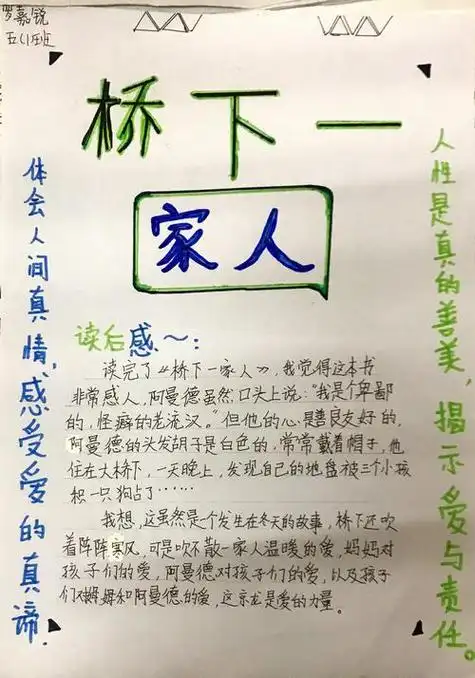 罗嘉锐
五(1)班
桥下一
家人
体会人间真情,感受爱的真谛.
人性是真的善美,揭示爱与责任。
读后感~:
读完了《桥下一家人》,我觉得这本书
非常感人,阿曼德虽然口头上说:“我是个卑鄙
的,怪癖的老流汉。”但他的心是善良友好的,
阿曼德的头发胡子是白色的,常常戴着帽子,他
住在大桥下,一天晚上,发现自己的地盘被三个小孩
和一只狗占了……
我想,这虽然是个发生在冬天的故事,桥下还吹
着阵阵寒风,可是吹不散一家人温暖的爱,妈妈对
孩子们的爱,阿曼德对孩子们的爱,以及孩子
们对姆和阿曼德的爱,这就是爱的力量。